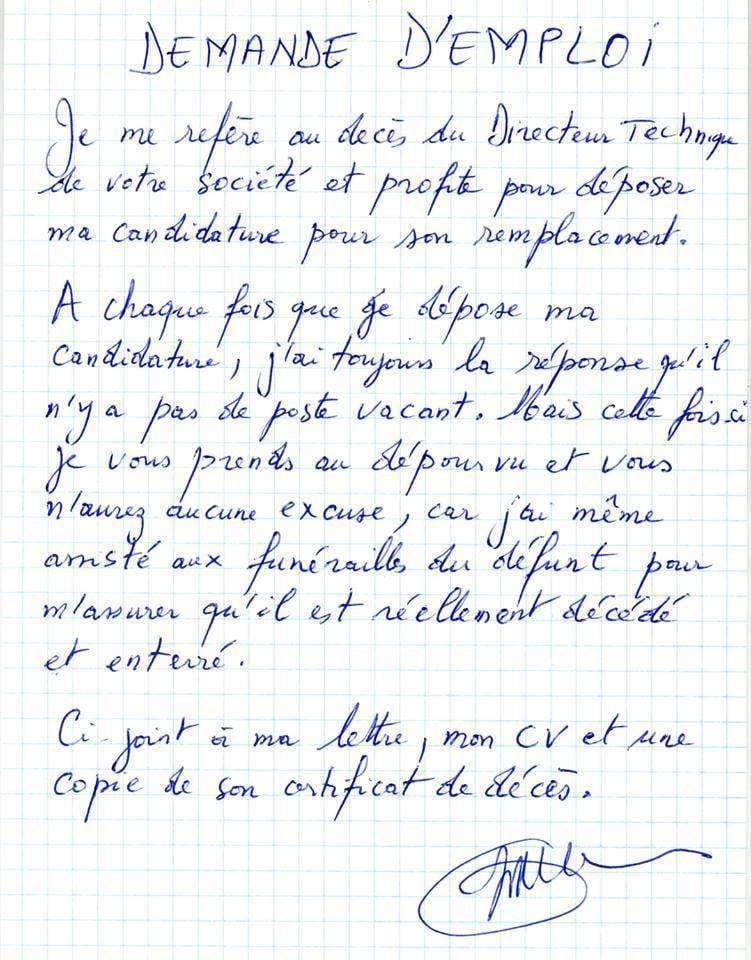 DEMANDE D'EMPLOi
Je me refère au decès du Directeur Technique
de votre société et profite pour déposer
ma candidature pour son remplacement.
A chaque fois que je dépose ma
candidature, j'ai toujours la réponse qu'il
n'y a pas de poste vacant. Mais cette fois-ci
je vous prends au dépourvu et vous
n'aurez aucune excuse, car j'ai même
assisté aux funérailles du défunt pour
m'assurer qu'il est réellement décédé
et enterré.
Ci-joint à ma lettre, mon CV et une
copie de son certificat de décès.